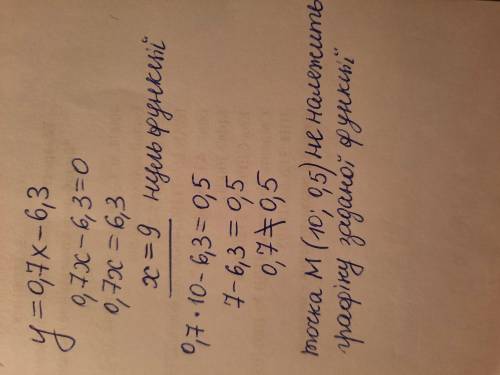 y = 0,7x - 6,3
0,7x - 6,3 = 0
0,7x = 6,3
x = 9 нуль функції
0,7 · 10 - 6,3 = 0,5
7 - 6,3 = 0,5
0,7 ≠ 0,5
точка M (10; 0,5) не належить
графіку заданої функції